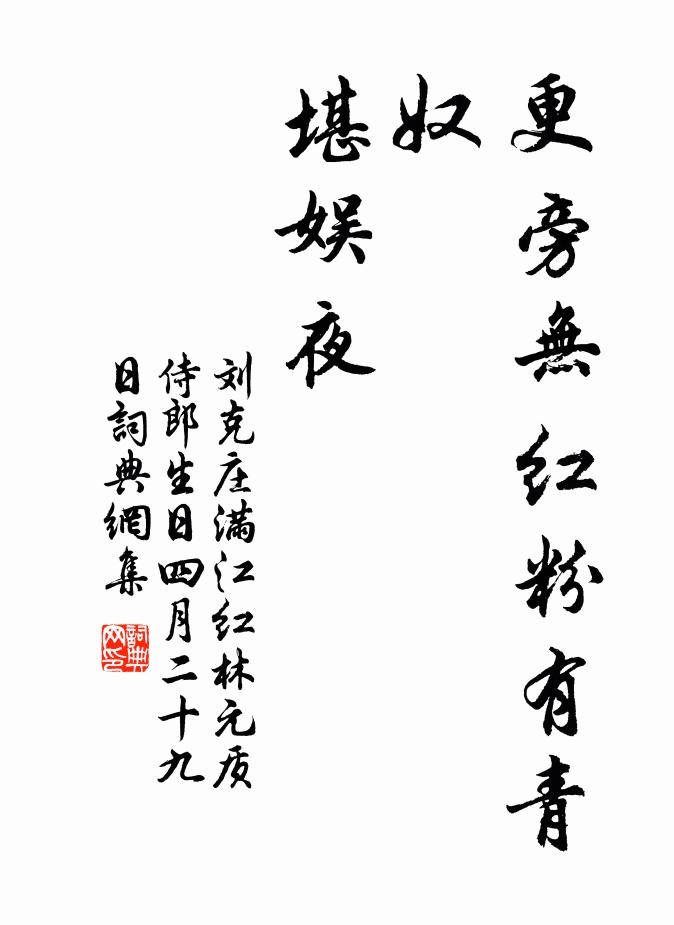 更旁無红粉有青
奴
堪娱夜
刘克庄满江红林元质
侍郎生日四月二十九
日詞典網集
詞典
网印